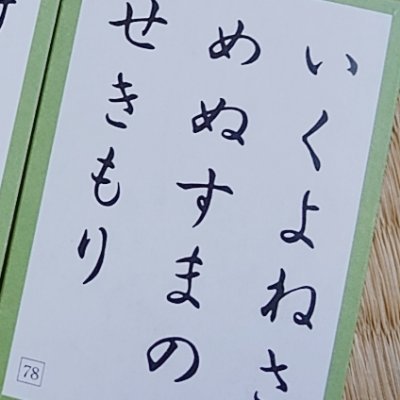 いくよねさ
めぬすまの
せきもり
78